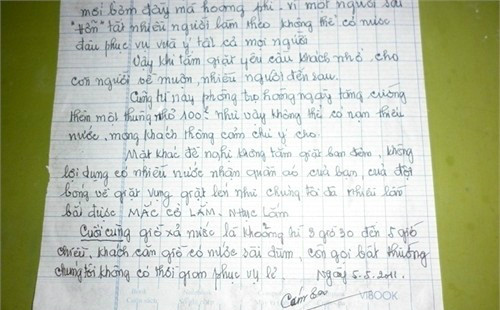 mới bơm đầy mà hoang phí. Vì một người sài
"hỗn" tất nhiều người làm theo không thể có nước
đâu phục vụ vừa ý tất cả mọi người
Vậy khi tắm giặt yêu cầu khách nhớ cho
con người về muộn, nhiều người đến sau.
Cũng từ này phòng trọ hàng ngày tăng cường
thêm một thùng nhỏ 100l như vậy không thể có nạn thiếu
nước, mong khách thông cảm chú ý cho.
Mặt khác đề nghị không tắm giặt ban đêm, không
lợi dụng có nhiều nước nhận quần áo của bạn, của đội
bóng về giặt vụng giặt lén như chúng tôi đã nhiều lần
bắt được MẮC CỞ LẮM. Nhục Lắm
Cuối cùng giờ xả nước là khoảng từ 3 giờ 30 đến 5 giờ
chiều, khách cần giờ có nước sài dùm, còn gọi bất thường
chúng tôi không có thời gian phục vụ lẻ. Ngày 5.5.2011.
Cảm ơn
VIBOOK